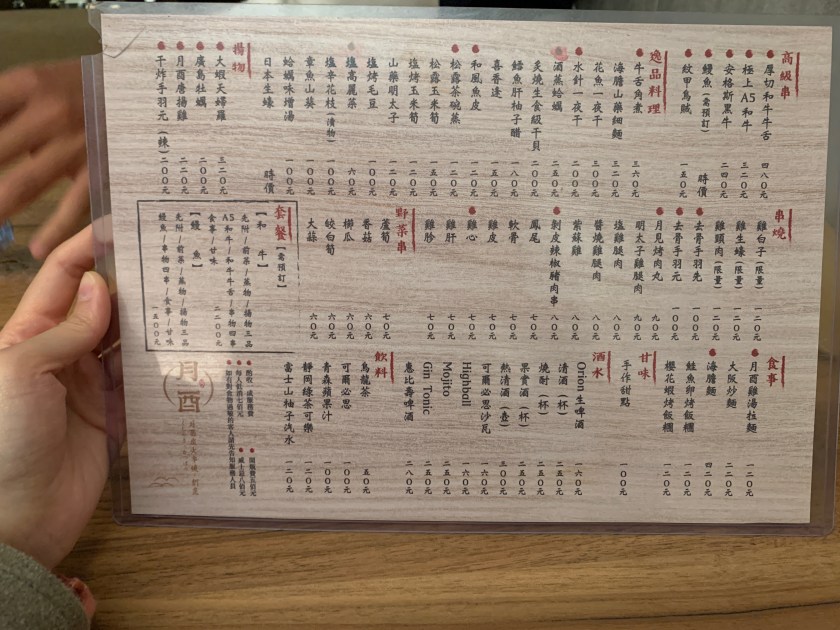 高級串
厚切和牛牛舌 四八〇元
極上A5和牛 三二〇元
安格斯黑牛 二四〇元
鰻魚（需預訂） 時價
紋甲烏賊 一五〇元
逸品料理
牛舌角煮 三六〇元
海膽山藥細麵 三二〇元
花魚一夜干 三〇〇元
水針一夜干 二〇〇元
酒蒸蛤蠣 二五〇元
炙燒生食級干貝 二〇〇元
鱈魚肝柚子醋 一八〇元
喜香逢 一五〇元
和風魚皮 一二〇元
松露茶碗蒸 一二〇元
松露玉米筍 一五〇元
塩烤玉米筍 一二〇元
山藥明太子 一二〇元
塩烤毛豆 一〇〇元
塩高麗菜 六〇元
塩辛花枝（漬物） 一〇〇元
章魚山葵 一〇〇元
蛤蠣味增湯 一〇〇元
日本生蠔 時價
揚物
大蝦天婦羅 三二〇元
廣島牡蠣 二〇〇元
月酉唐揚雞 二二〇元
干炸手羽元（辣） 二〇〇元
串燒
雞白子（限量） 一二〇元
雞生蠔（限量） 一二〇元
雞頸肉（限量） 一二〇元
去骨手羽先 一〇〇元
去骨手羽元 一〇〇元
月見烤肉丸 九〇元
明太子雞腿肉 九〇元
塩雞腿肉 八〇元
醬燒雞腿肉 八〇元
紫蘇雞 八〇元
剝皮辣椒豬肉串 八〇元
鳳尾 七〇元
軟骨 七〇元
雞皮 七〇元
雞心 七〇元
雞肝 七〇元
雞胗 七〇元
野菜串
蘆筍 七〇元
香菇 六〇元
櫛瓜 六〇元
皎白筍 六〇元
大蒜 六〇元
套餐【需預訂】
【和牛】
先附/前菜/蒸物/揚物三品
A5和牛/和牛牛舌/串物四串
食事/甘味 二二〇〇元
【鰻魚】
先附/前菜/蒸物/揚物三品
鰻魚/串物四串/食事/甘味
一五〇〇元
食事
月酉雞湯拉麵 一二〇元
大阪炒麵 二二〇元
海膽麵 四二〇元
鮭魚卵烤飯糰 一二〇元
櫻花蝦烤飯糰 一二〇元
甘味
手作甜點 一〇〇元
酒水
Orion生啤酒 一六〇元
清酒（杯） 二五〇元
燒酎（杯） 二五〇元
果實酒（杯） 二五〇元
熱清酒（壺） 三〇〇元
可爾必思沙瓦 一六〇元
Highball 一六〇元
Mojito 二五〇元
Gin Tonic 二五〇元
惠比壽啤酒 二八〇元
飲料
烏龍茶 五〇元
可爾必思 一〇〇元
青森蘋果汁 一〇〇元
靜岡綠茶可樂 一二〇元
富士山柚子汽水 一二〇元
酌收一成服務費
每人低消七佰元
如有對食物過敏的客人請先告知服務人員
開瓶費五佰元
威士忌八佰元
月酉